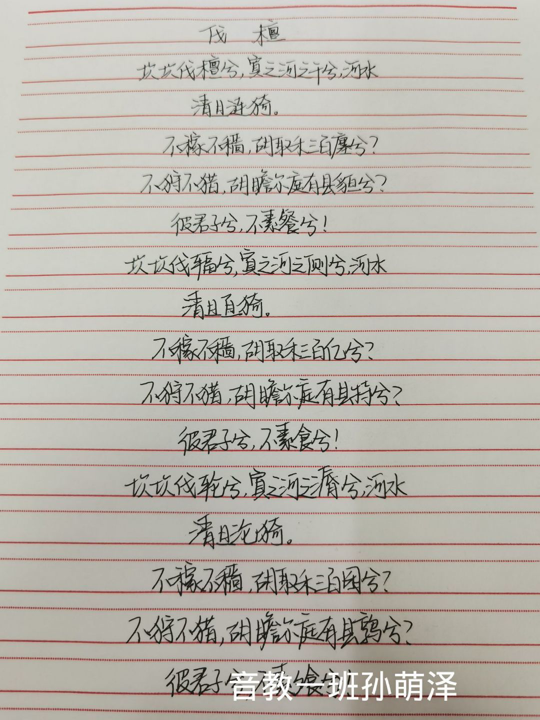 伐檀
坎坎伐檀兮,寘之河之干兮,河水
清且涟猗。
不稼不穑,胡取禾三百廛兮?
不狩不猎,胡瞻尔庭有县貆兮?
彼君子兮,不素餐兮!
坎坎伐辐兮,寘之河之侧兮,河水
清且直猗。
不稼不穑,胡取禾三百亿兮?
不狩不猎,胡瞻尔庭有县特兮?
彼君子兮,不素食兮!
坎坎伐轮兮,寘之河之漘兮,河水
清且沦猗。
不稼不穑,胡取禾三百囷兮?
不狩不猎,胡瞻尔庭有县鹑兮?
彼君子兮,不素飧
音教一班孙萌泽